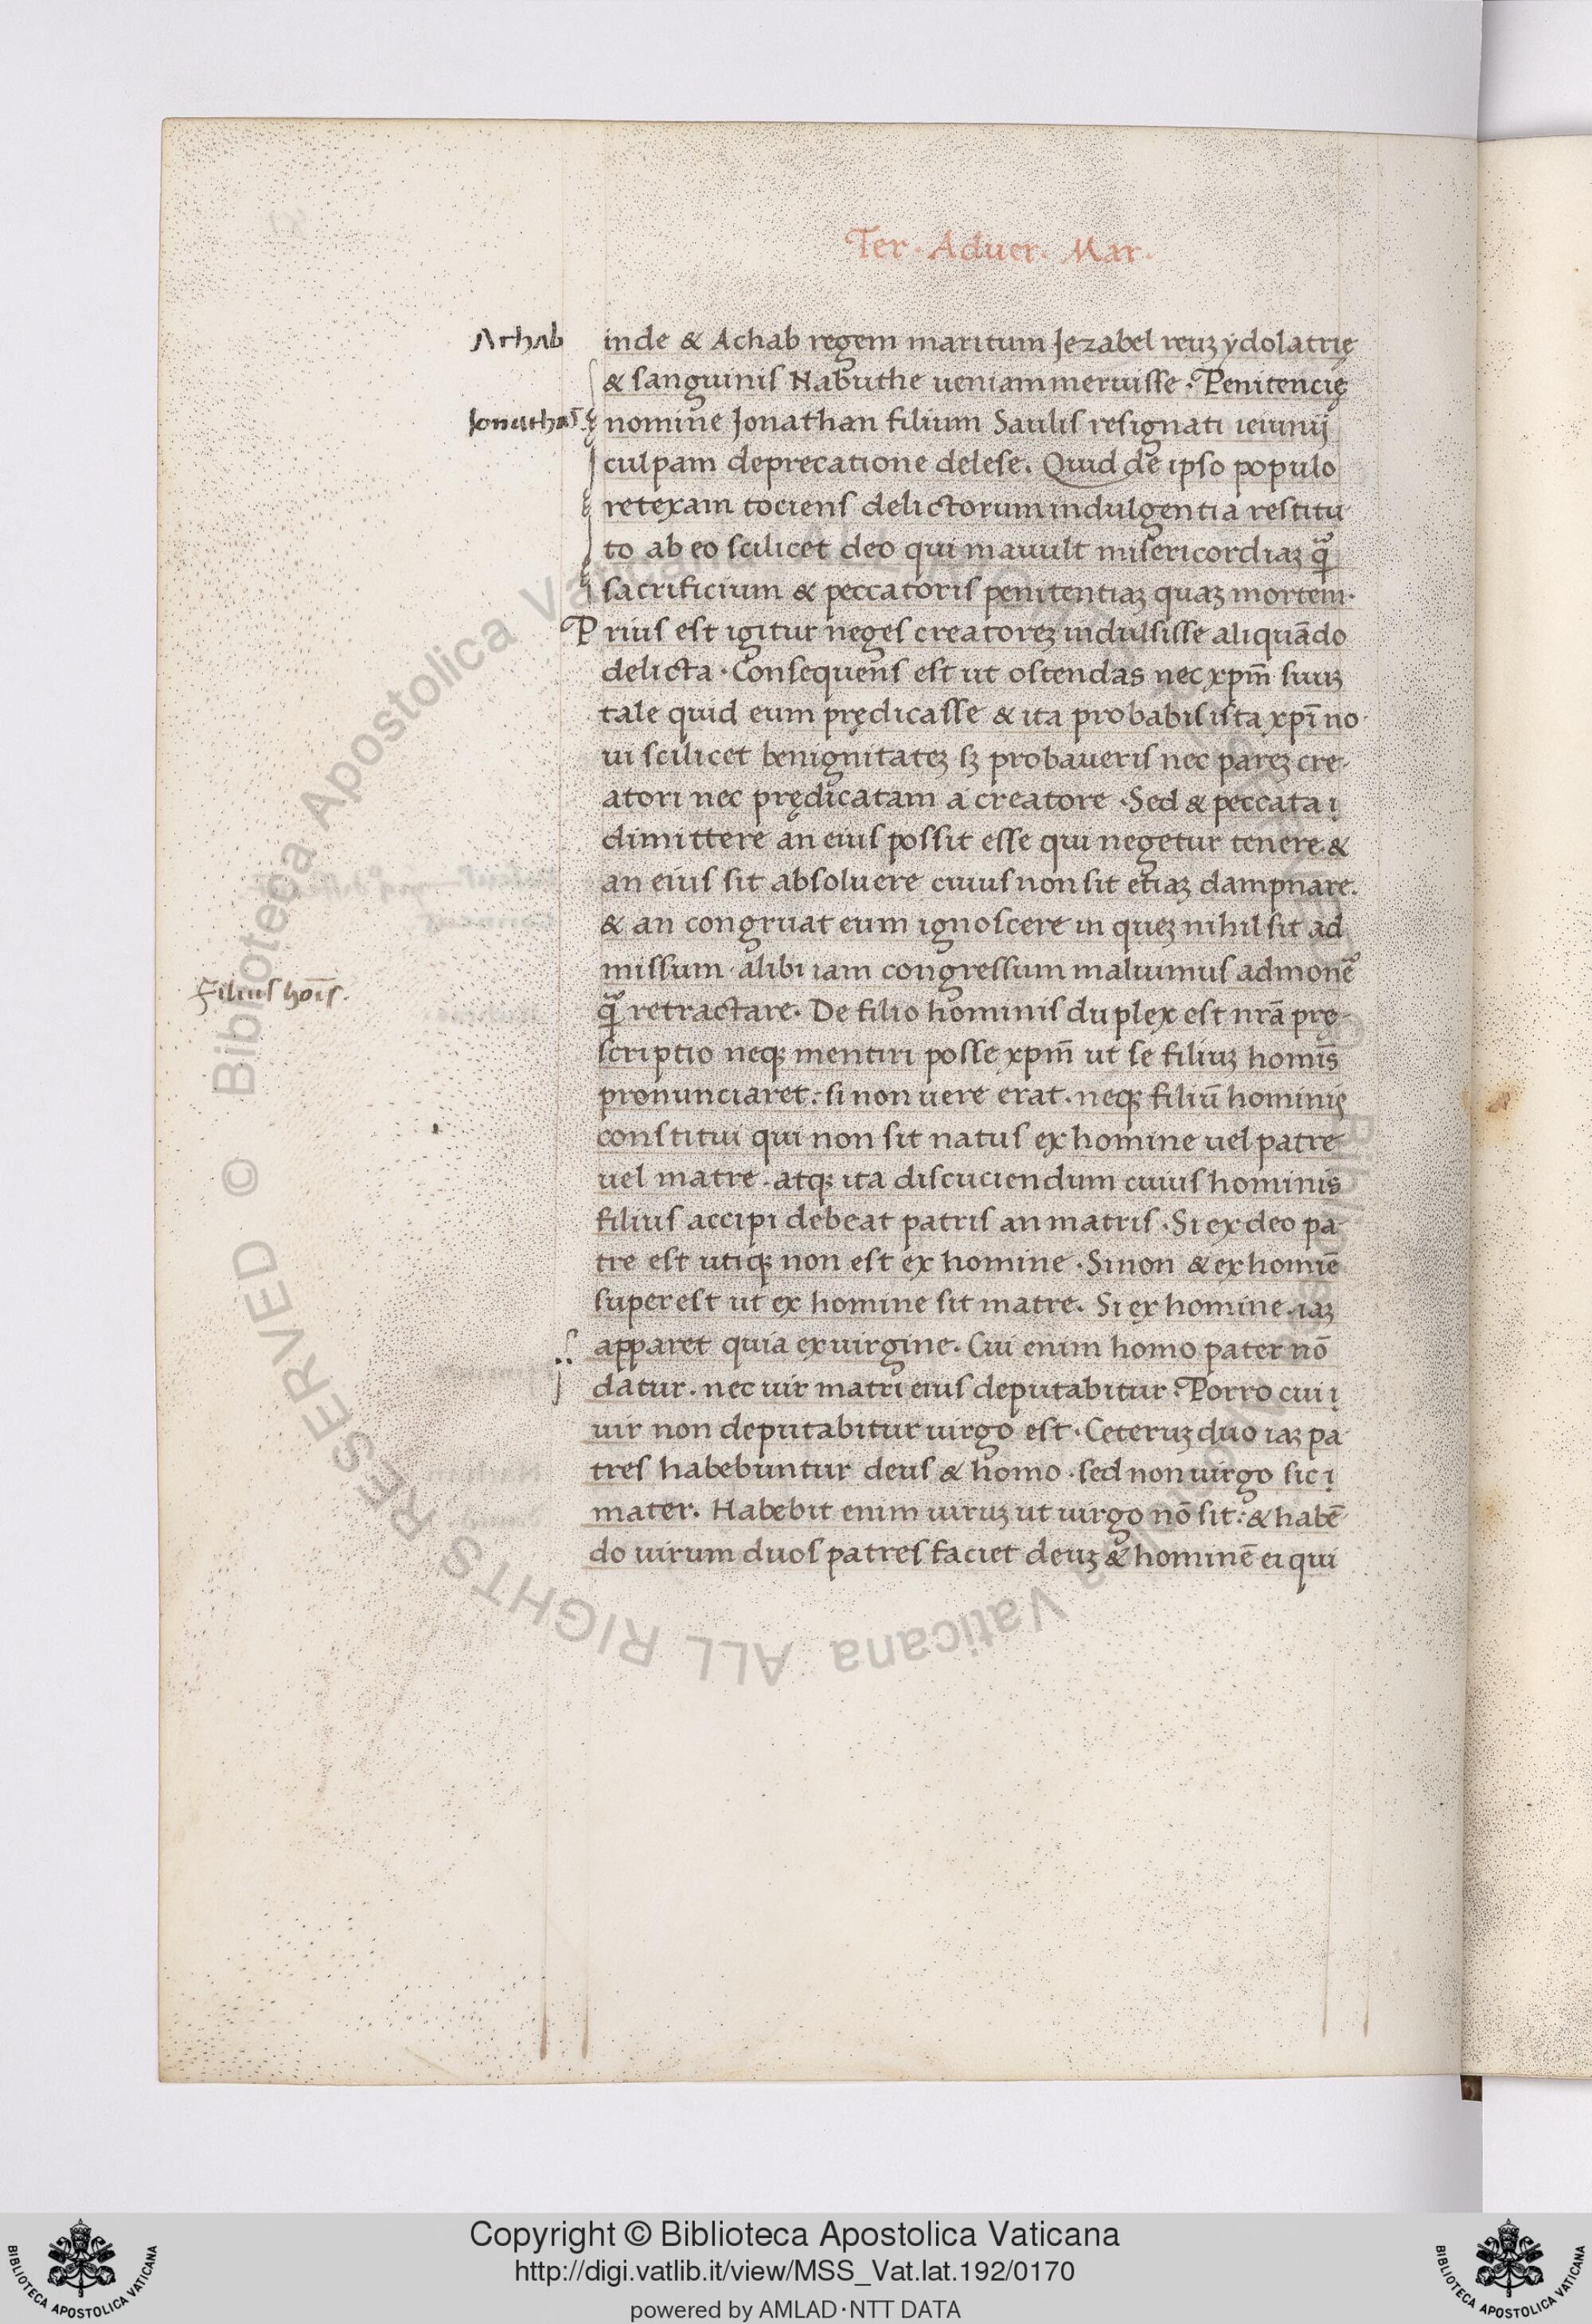 Ter · Aduer · Mar ·
Achab
inde & Achab regem maritum Jezabel reuꝫ ydolatrię
& sanguinis Nabuthe ueniam meruisse · Penitencię
Jonathas
nomine Jonathan filium Saulis resignati ieiunij
culpam deprecatione delese. Quid de ipso populo
retexam tociens delictorum indulgentia restitu
to ab eo scilicet deo qui mauult misericordiaꝫ qᷓ
sacrificium & peccatoris penitentiaꝫ quaꝫ mortem ·
Prius est igitur neges creatoreꝫ indulsisse aliquādo
delicta · Consequens est ut ostendas nec xpm̄ suuꝫ
tale quid eum prędicasse & ita probabis ista xpī no
ui scilicet benignitateꝫ sꝫ probaueris nec pareꝫ cre-
atori nec prędicatam a creatore · Sed & peccata
dimittere an eius possit esse qui negetur tenere &
an eius sit absoluere cuius non sit etiaꝫ dampnare.
& an congruat eum ignoscere in queꝫ nihil sit ad
missum · alibi iam congressum maluimus admone᷑
Filius hoīs.
qᷓ retractare · De filio hominis duplex est nrā prę-
scriptio neqꝫ mentiri posse xpm̄ ut se filiuꝫ homīs
pronunciaret : si non uere erat · neqꝫ filiū hominis
constitui qui non sit natus ex homine uel patre
uel matre · atqꝫ ita discuciendum cuius hominis
filius accipi debeat patris an matris · Si ex deo pa
tre est utiqꝫ non est ex homine · Si non & ex homīe
superest ut ex homine sit matre. Si ex homine · iaꝫ
apparet quia ex uirgine · Cui enim homo pater nō
datur · nec uir matri eius deputabitur · Porro cui
uir non deputabitur uirgo est · Ceteruꝫ duo iaꝫ pa
tres habebuntur deus & homo · sed non uirgo sic
mater. Habebit enim uiruꝫ ut uirgo nō sit : & habē
do uirum duos patres faciet deuꝫ & hominē ei qui
© Biblioteca Apostolica Vaticana ALL RIGHTS RESERVED
Copyright © Biblioteca Apostolica Vaticana
http://digi.vatlib.it/view/MSS_Vat.lat.192/0170
powered by AMLAD·NTT DATA
BIBLIOTECA APOSTOLICA VATICANA
BIBLIOTECA APOSTOLICA VATICANA